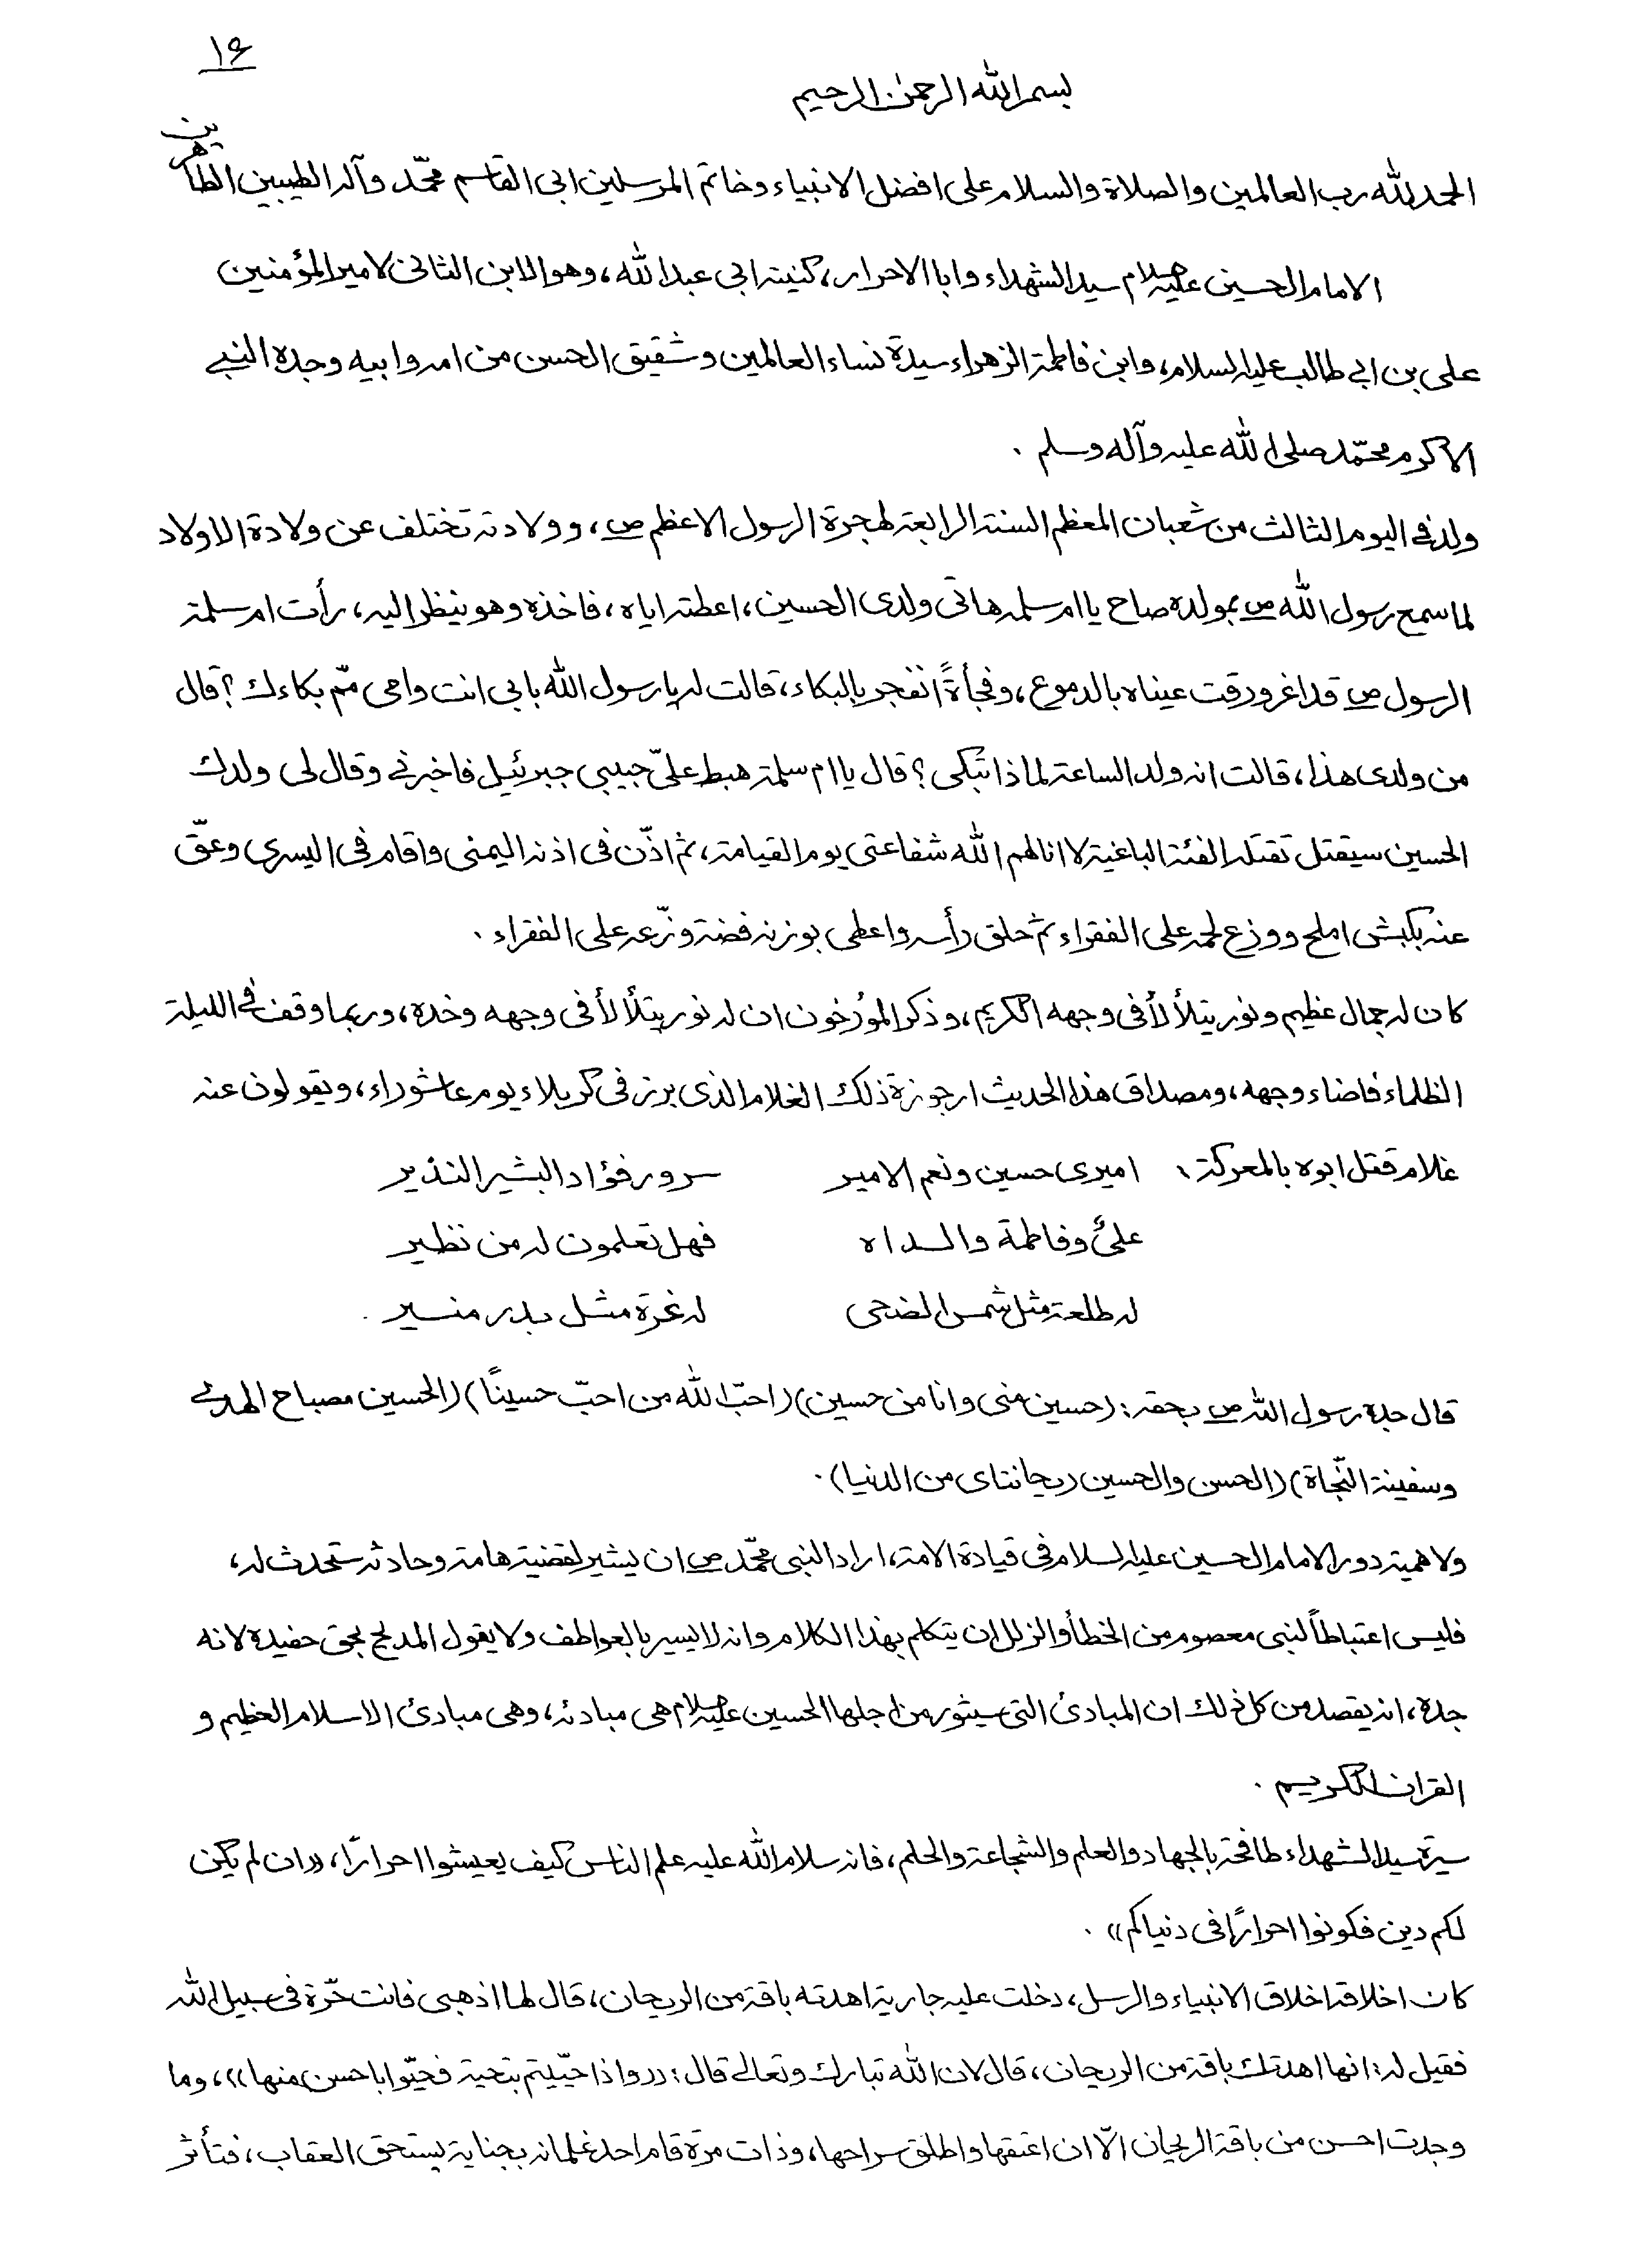 ۱۶
بسم الله الرحمن الرحيم
الحمد لله رب العالمين والصلاة والسلام على افضل الانبياء وخاتم المرسلين ابي القاسم محمّد وآله الطيبين الطاهرين
الامام الحسين عليه السلام سيد الشهداء وابا الاحرار، كنيته ابي عبد الله، وهو الابن الثاني لامير المؤمنين
علي بن ابي طالب عليه السلام، وابن فاطمة الزهراء سيدة نساء العالمين وشقيق الحسن من امه وابيه وجده النبي
الاكرم محمّد صلى الله عليه وآله وسلم .
ولد في اليوم الثالث من شعبان المعظم السنة الرابعة لهجرة الرسول الاعظم ص، وولادته تختلف عن ولادة الاولاد
لما سمع رسول الله ص بمولده صاح يا ام سلمه هاتي ولدي الحسين، اعطته اياه، فاخذه وهو ينظر اليه، رأت ام سلمة
الرسول ص قد اغرورقت عيناه بالدموع، وفجأةً انفجر بالبكاء، قالت له يا رسول الله بابي انت وامي ممّ بكاءك؟ قال
من ولدي هذا، قالت انه ولد الساعة لماذا تبكي؟ قال يا ام سلمة هبط عليّ حبيبي جبرئيل فاخبرني وقال لي ولدك
الحسين سيقتل تقتله الفئة الباغية لا انالهم الله شفاعتي يوم القيامة، ثم اذّن في اذنه اليمنى واقام في اليسرى وعقّ
عنه بكبش املح ووزع لحمه على الفقراء ثم حلق رأسه واعطى بوزنه فضة وزّعه على الفقراء .
كان له جمال عظيم ونور يتلألأ في وجهه الكريم، وذكر المؤرخون ان له نور يتلألأ في وجهه وخده، وربما وقف في الليلة
الظلماء فاضاء وجهه، ومصداق هذا الحديث ارجوزة ذلك الغلام الذي برز في كربلاء يوم عاشوراء، ويقولون عنه
غلام قتل ابوه بالمعركة، اميري حسين ونعم الامير سرور فؤاد البشير النذير
عليٌ وفاطمة والداه فهل تعلمون له من نظير
له طلعة مثل شمس الضحى له غرة مثل بدر منير .
قال جده رسول الله ص بحقه: (حسين مني وانا من حسين) (احبّ الله من احبّ حسينًا) (الحسين مصباح الهدى
وسفينة النّجاة) (الحسن والحسين ريحانتاي من الدنيا) .
ولاهمية دور الامام الحسين عليه السلام في قيادة الامة، اراد النبي محمّد ص ان يشير لقضية هامة وحادثه ستحدث له،
فليس اعتباطاً لنبي معصوم من الخطأ والزلل ان يتكلم بهذا الكلام وانه لا يسير بالعواطف ولا يقول المديح بحق حفيده لانه
جده، انه يقصد من كل ذلك ان المبادئ التي سيثور من اجلها الحسين عليه السلام هي مبادئه، وهي مبادئ الاسلام العظيم و
القران الكريم .
سيرة سيد الشهداء طافحة بالجهاد والعلم والشجاعة والحلم، فانه سلام الله عليه علم الناس كيف يعيشوا احرارًا، ((ان لم يكن
لكم دين فكونوا احرارًا في دنياكم)) .
كان اخلاقه اخلاق الانبياء والرسل، دخلت عليه جارية اهدته باقة من الريحان، قال لها اذهبي فانت حرّة في سبيل الله
فقيل له: انها اهدتك باقة من الريحان، قال لان الله تبارك وتعالى قال: ((واذا حيّيتم بتحية فحيّوا باحسن منها))، وما
وجدت احسن من باقة الريحان الّا ان اعتقها واطلق سراحها، وذات مرة قام احد غلمانه بجناية يستحق العقاب، فتأثر